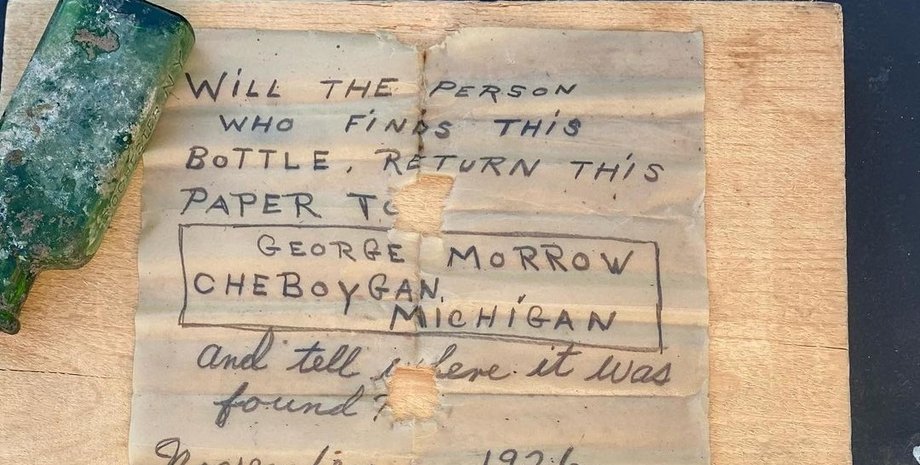 WiLL THE PERSON
WHO FiNDS THiS
BOTTLE, RETURN THiS
PAPER TO
GEORGE MORROW
CHEBOYGAN,
MICHiGAN
and tell where it was
found?
1926